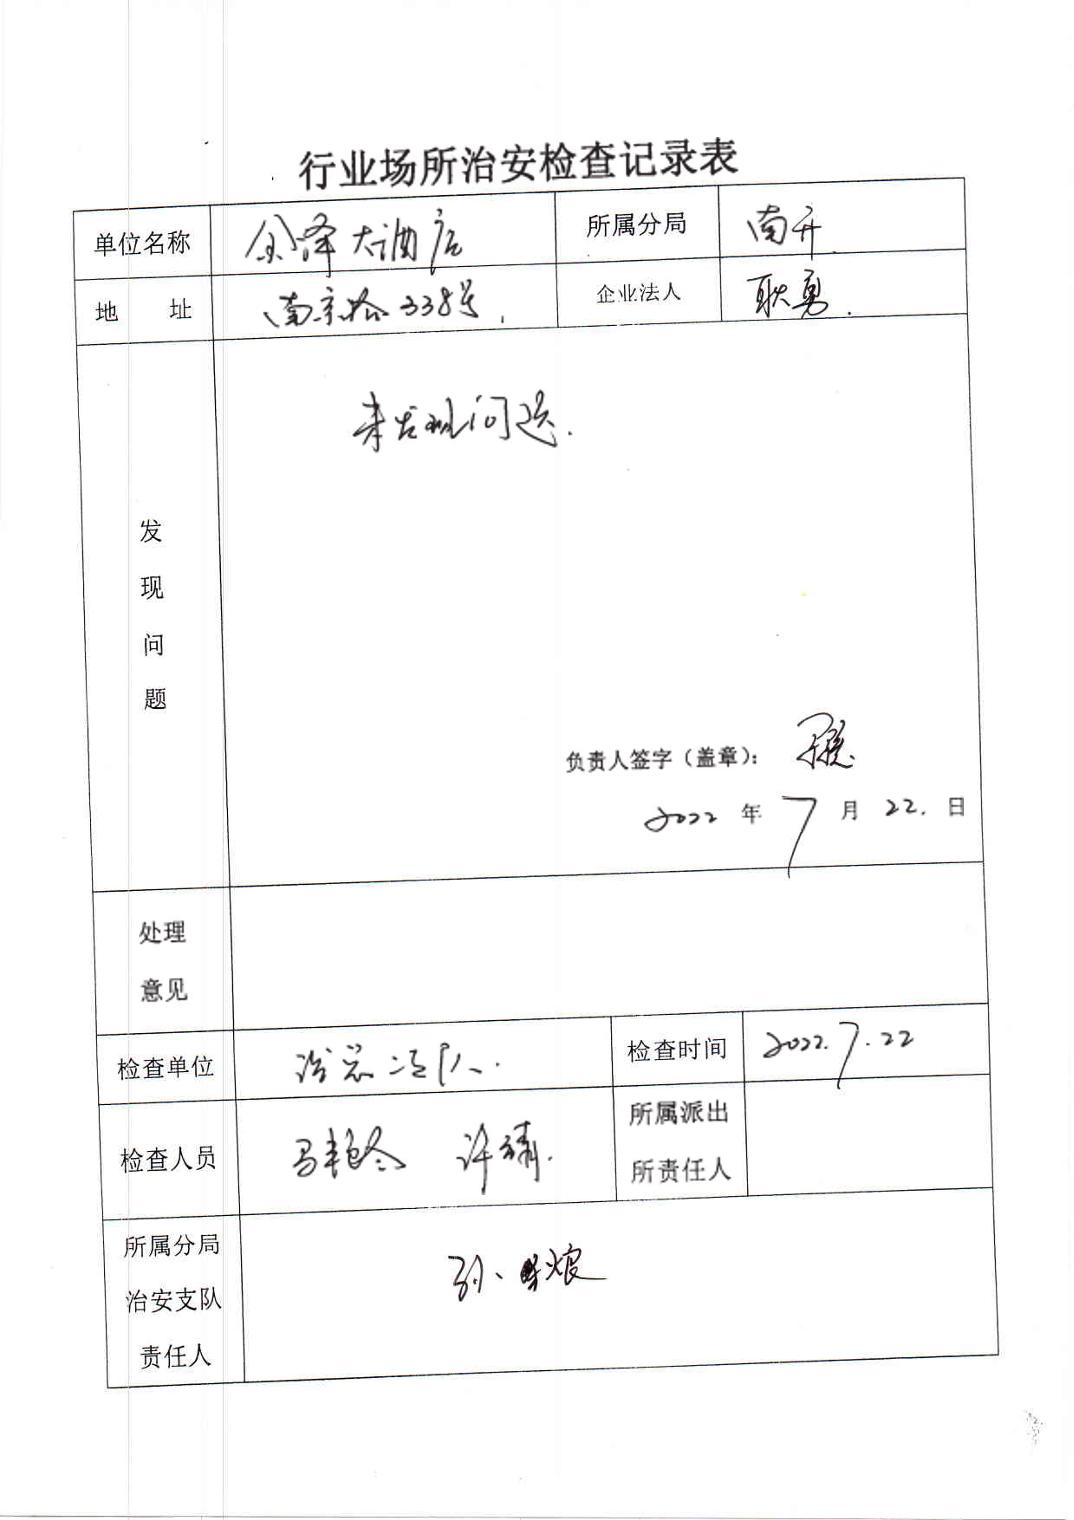 行业场所治安检查记录表
单位名称 金泽大酒店 所属分局 南开
地 址 南京路338号 企业法人 耿勇
发现问题
未发现问题.
负责人签字（盖章）：
2022 年 7 月 22. 日
处理意见
检查单位 治安总队. 检查时间 2022.7.22
检查人员 许靖. 所属派出所责任人
所属分局治安支队责任人 孙